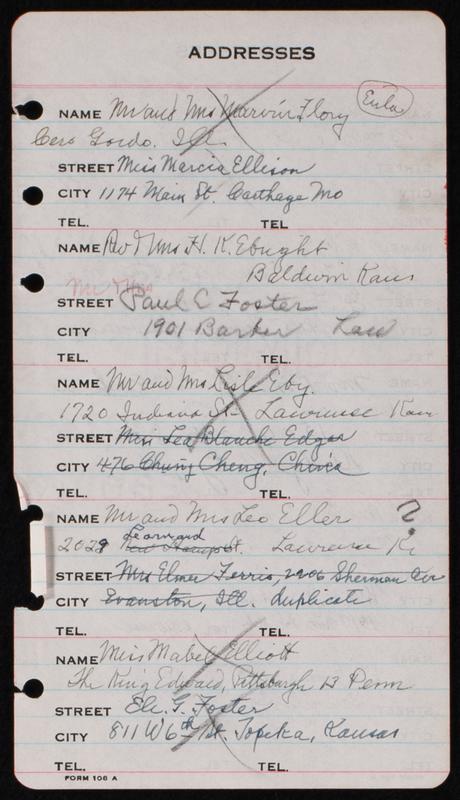 ADDRESSES
NAME Mr and Mrs Marvin Flory Eula
Cero Gordo. Ill.
STREET Miss Marcia Ellison
CITY 1174 Main St. Carthage Mo
TEL. TEL
NAME Rev & Mrs H. K. Ebright
Baldwin Kans
Mr & Mrs
STREET Paul C Foster
CITY 1901 Barker Law
TEL. TEL.
NAME Mr and Mrs Lisle Eby.
1720 Indiana St- Lawrence Kan
STREET Miss Lea Blanche Edgar
CITY 476 Chung Cheng, China
TEL. TEL.
NAME Mr and Mrs Leo Eller ?
Learnard
2029 New Hamp St. Lawrence K
STREET Mrs Elmer Ferris, 2906 Sherman Ave
CITY Evanston, Ill. duplicate
TEL. TEL.
NAME Miss Mabel Elliott
The King Edward, Pittsburgh 13 Penn
STREET Ele. G. Foster
CITY 811 W 6th St. Topeka, Kansas
TEL. TEL.
FORM 106 A